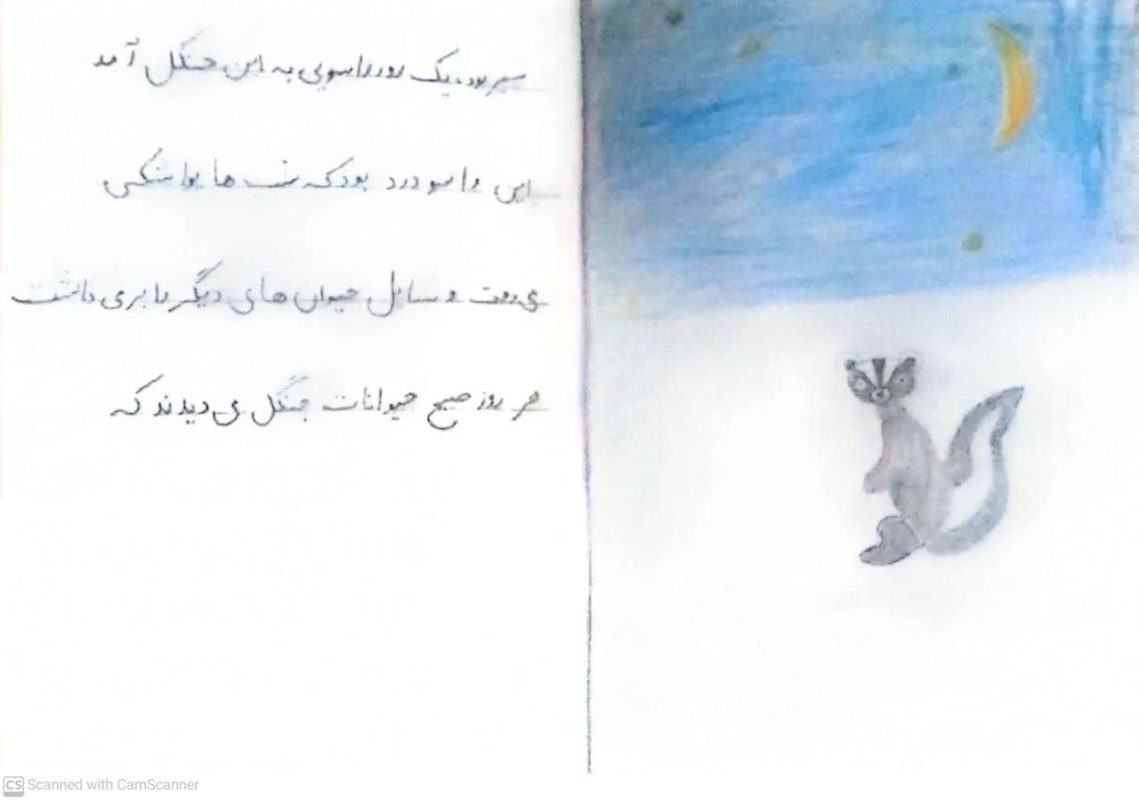 سبز بود. یک روز راسویی به این جنگل آمد
این راسو دزد بود که شب ها یواشکی
می رفت وسایل حیوان های دیگر را بر می داشت
هر روز صبح حیوانات جنگل می دیدند که
CS Scanned with CamScanner